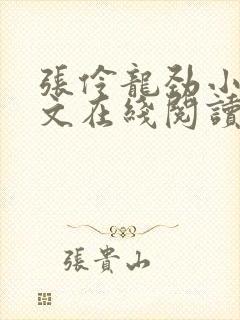 張伶龍勁小
文在綫閱讀
張貴山